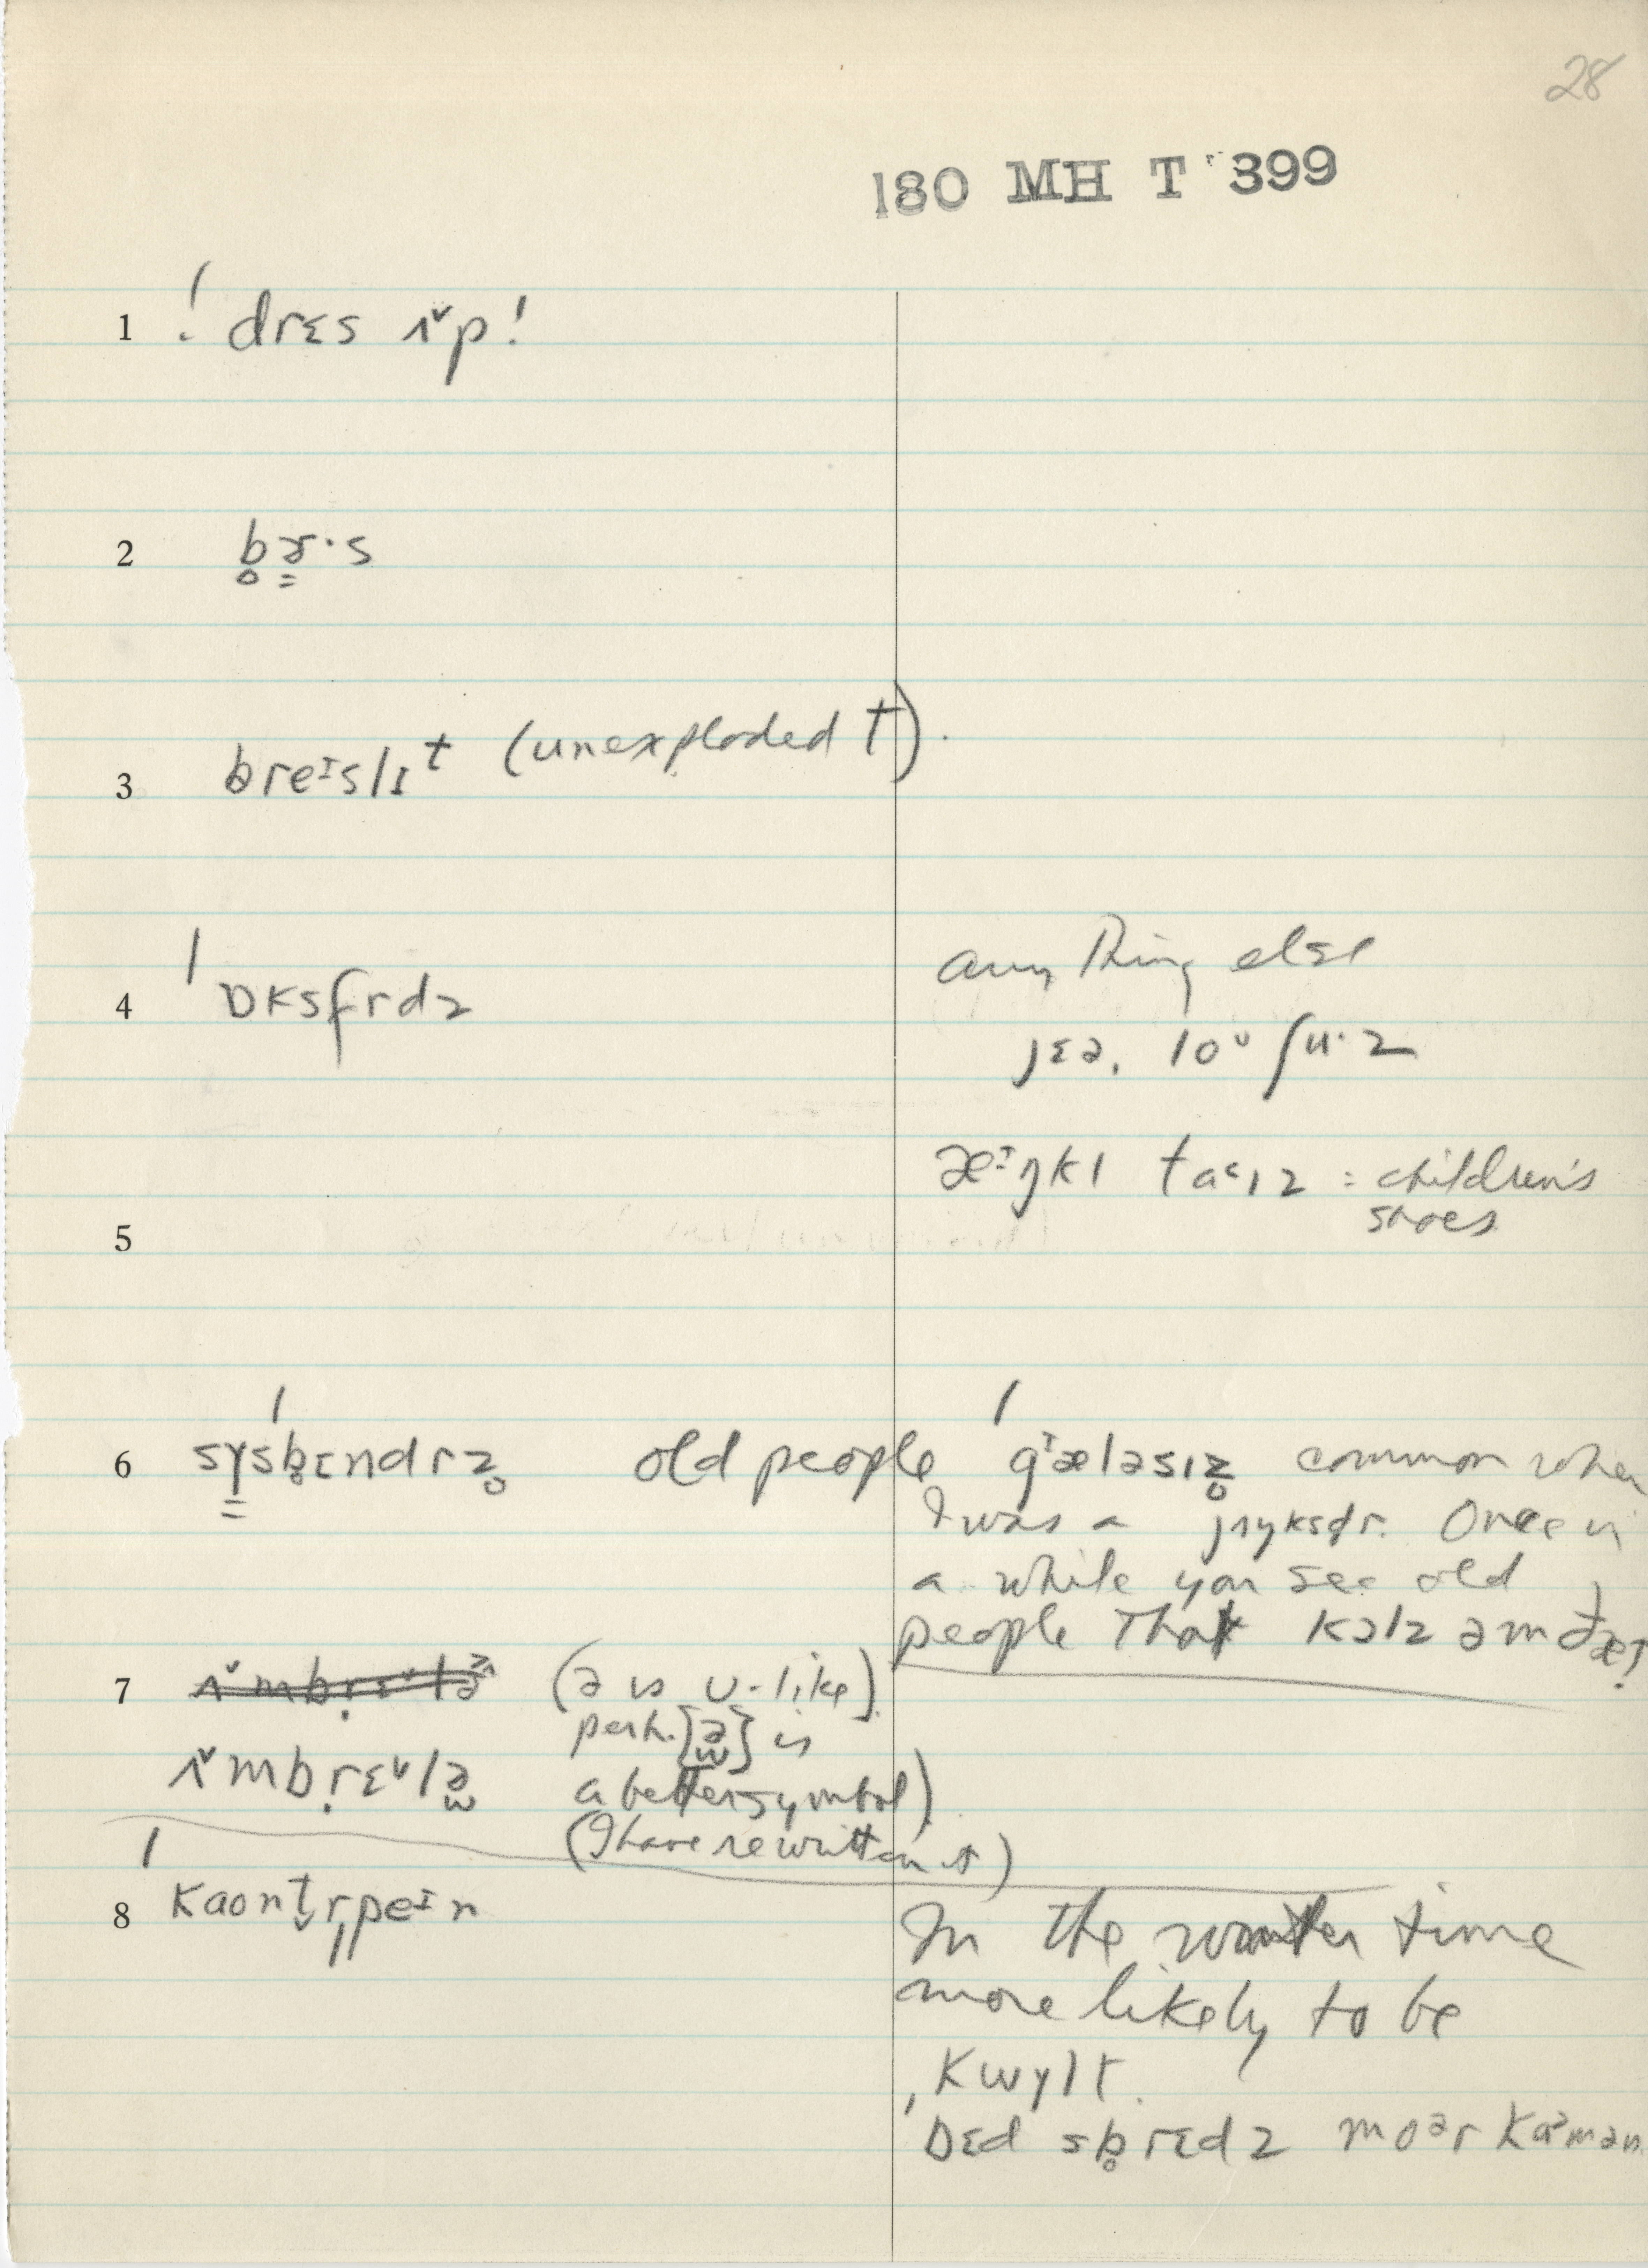 28
180 MH T 399
1 ˈdrɛs ʌ˅p!
2 b̥ɚ·s
3 breᶦslɪᵗ (unexploded t).
4 ˈɒksfrdz
anything else
jɛə, loᵁ ʃu·z
æᶦŋkl ta˂ɪz = children's
shoes
5
6 sɣˈsb̥ɛndrz̥ old people ˈgᶦæləsɪz̥ common when
I was a jʌŋkstr. Once in
a while you see old
people that kɔlz əm ðæt
7 (ə is ʊ-like)
perh. [ə̫] is
ʌ˅mbrɛ˅lə̫ a better symbol)
(I have rewritten it)
8 ˈkaʊnt̬r̩peᶦn
In the winter time
more likely to be
ˌkwɣlt.
bɛd sb̥rɛdz moər kɑmən